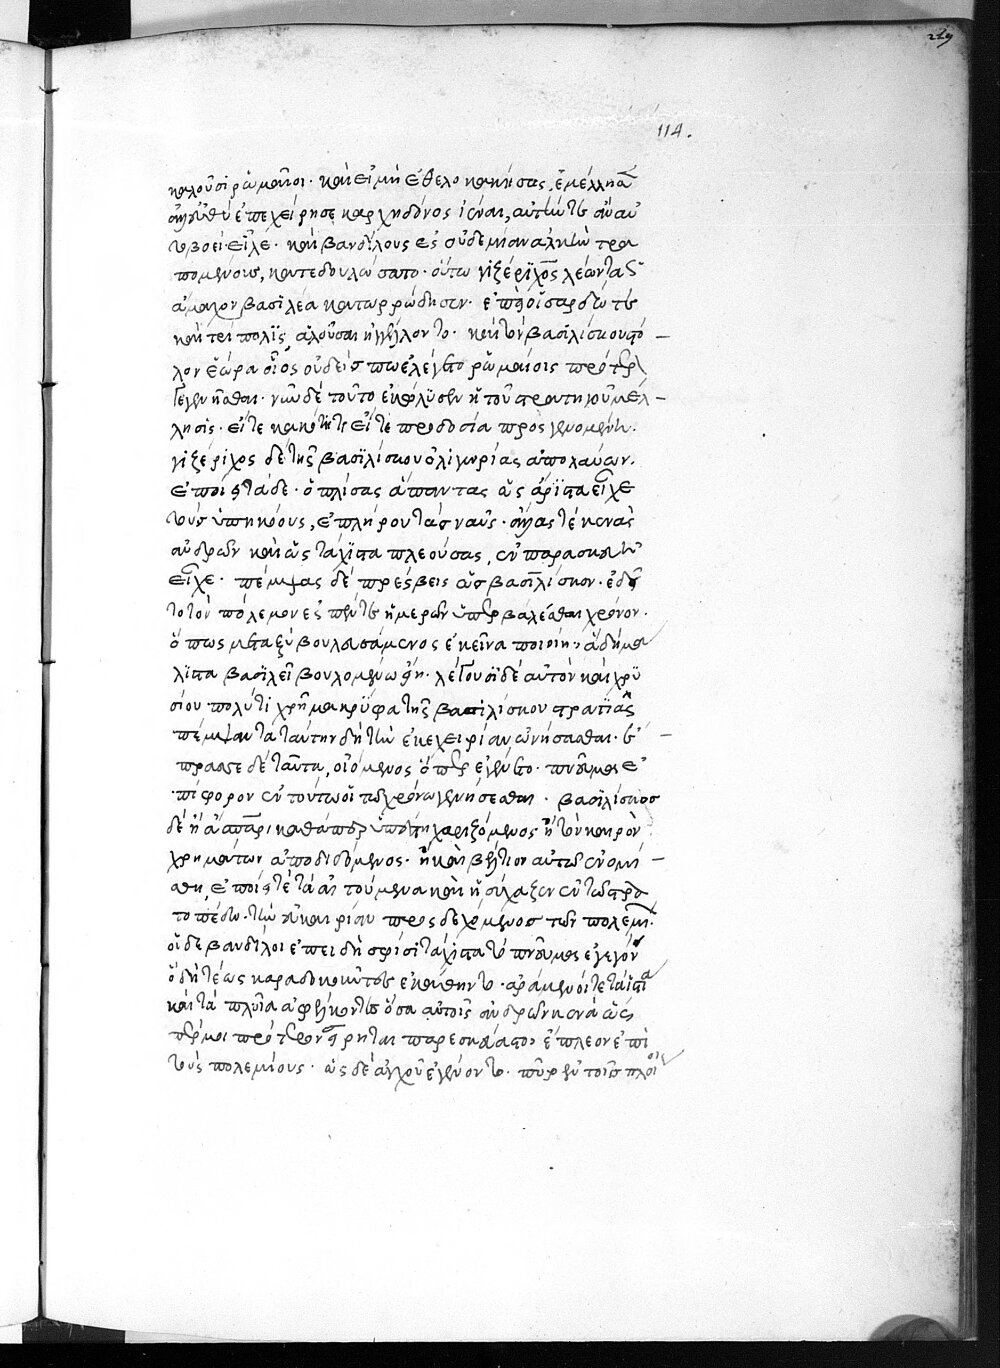 219
114.
καλοῦσι ῥωμαῖοι· καὶ εἰ μὴ ἐθελοκακήσας, ἐμέλλησεν
ἀλλ' εὐθὺ ἐπεχείρησε καρχηδόνος ἰέναι, αὐτήν τε ἂν αὐ
τοβοεὶ εἷλε· καὶ βανδίλους ἐς οὐδεμίαν ἀλκὴν τρα
πομένους, κατεδουλώσατο· οὕτω γιζέριχος λέωντα ὡς
ἄμαχον βασιλέα κατωρρώδησεν· ἐπεὶ οἱ σαρδώ τε
καὶ τρίπολις ἁλοῦσαι ἠγγέλοντο· καὶ τὸν βασιλίσκου στό-
λον ἑώρα οἷος οὐδείς πω ἐλέγετο ῥωμαίοις πρότερον
γεγενῆσθαι· νῦν δὲ τοῦτο ἐκώλυσεν ἡ τοῦ στρατηγοῦ μέλ-
λησις· εἴτε κακότητι εἴτε προδοσία προσγενομένη·
γιζέριχος δὲ τῆς βασιλίσκου ὀλιγωρίας ἀπολαύων.
ἐποίει τάδε· ὁπλίσας ἅπαντας ὡς ἄριστα εἶχε
τοὺς ὑπηκόους, ἐπλήρου τὰς ναῦς· ἄλλας τὲ κενὰς
ἀνδρῶν καὶ ὡς τάχιστα πλεούσας, ἐν παρασκευῆ
εἶχε· πέμψας δὲ πρέσβεις ὡς βασιλίσκον· ἐδεῖ
το τὸν πόλεμον ἐς πέντε ἡμερῶν ὑπερβαλέσθαι χρόνον·
ὅπως μεταξὺ βουλευσάμενος ἐκεῖνα ποιοίη· ἃ δὴ μά
λιστα βασιλεῖ βουλομένω εἴη· λέγουσι δὲ αὐτὸν καὶ χρυ
σίου πολύ τι χρῆμα κρύφα τῆς βασιλίσκου στρατιᾶς
πέμψαντα ταύτην δὴ τὴν ἐκεχειρίαν ὠνήσασθαι· ἔ-
πρασσε δὲ ταῦτα, οἰόμενος ὅπερ ἐγένετο· πνεῦμα ἐ
πίφορον ἐν τούτω οἱ τῶ χρόνω γενήσεσθαι· βασιλίσκος
δὲ ἢ ἄσπαρι καθάπερ ὑπέστη χαριζόμενος ἢ τὸν καιρὸν
χρημάτων ἀποδιδόμενος· ἢ καὶ βέλτιον αὐτῶ ἐνομί-
σθη, ἐποίει τὲ τὰ αἰτούμενα καὶ ἡσύχαζεν ἐν τῶ στρα
τοπέδω· τὴν εὐκαιρίαν προσδεχόμενος τῶν πολεμίων·
οἱ δὲ βανδίλοι ἐπειδὴ σφίσι τάχιστα τὸ πνεῦμα ἐγεγόνει
ὃ δὴ τέως καραδοκοῦντες ἐκάθηντο· ἀράμενοί τε τὰ ἱστία
καὶ τὰ πλοῖα ἀφέλκοντες ὅσα αὐτοῖς ἀνδρῶν κενὰ ὥς
πέρ μοι πρότερον εἴρηται παρεσκεύαστο, ἔπλεον ἐπὶ
τοὺς πολεμίους· ὡς δὲ ἀγχοῦ ἐγένοντο· πῦρ ἐν τοῖς πλοί